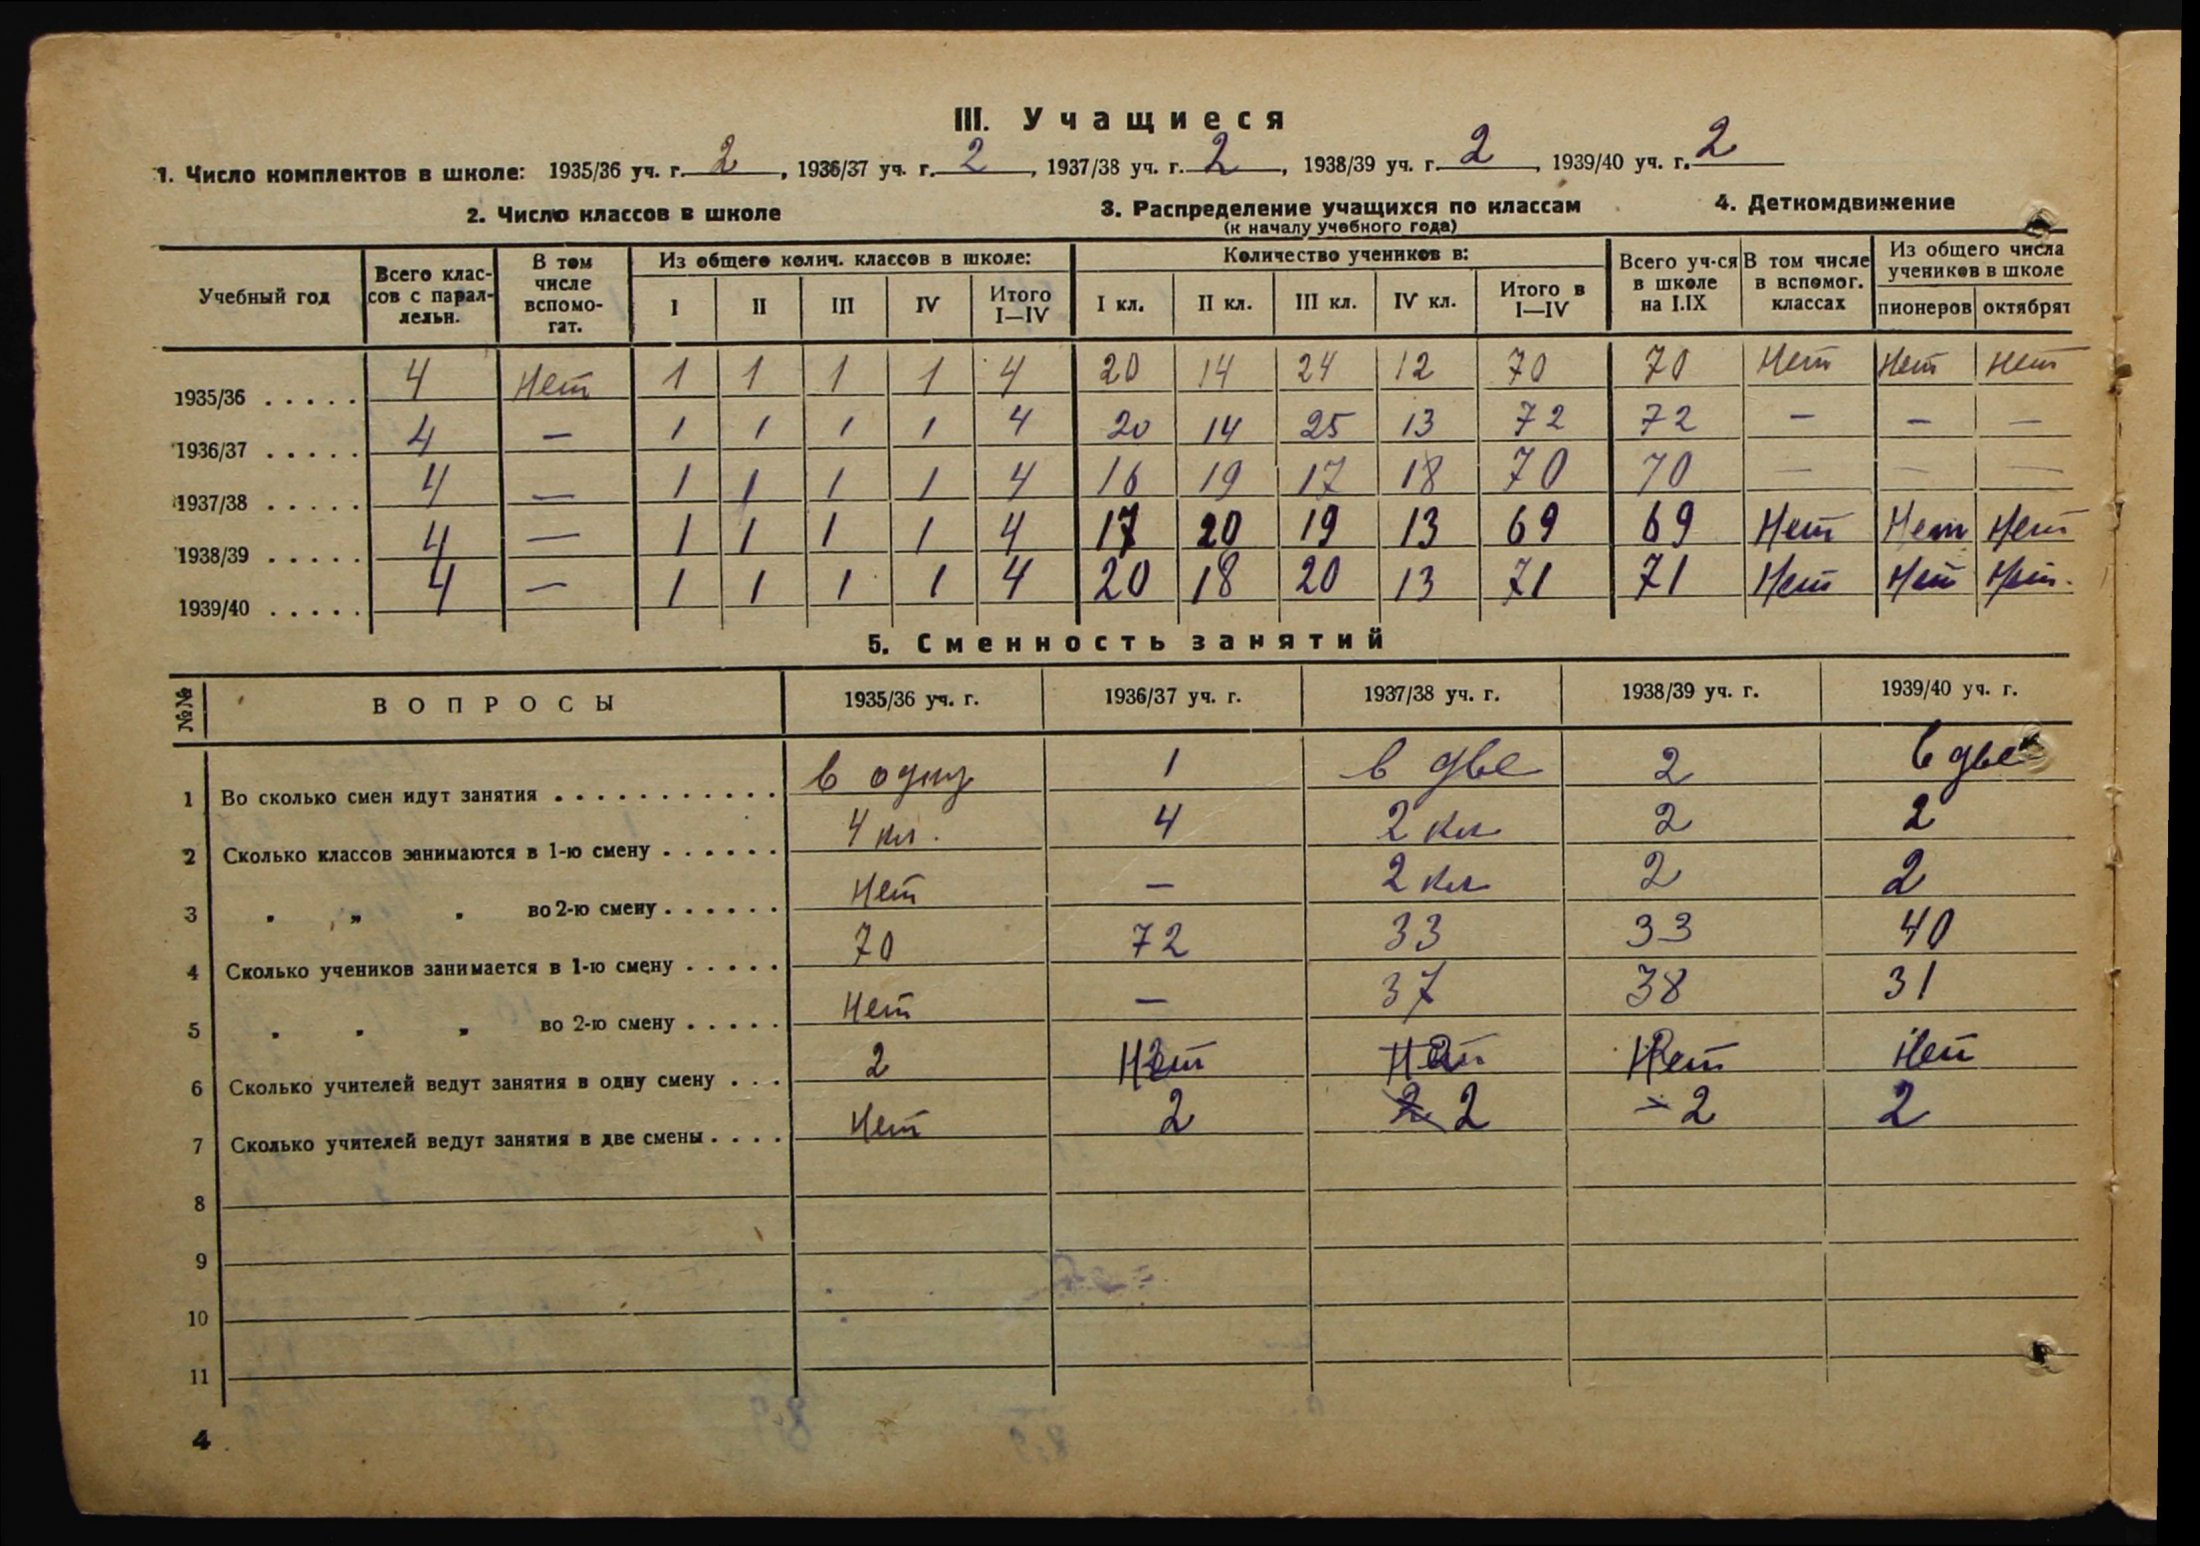 III. Учащиеся
1. Число комплектов в школе: 1935/36 уч. г. 2, 1936/37 уч. г. 2, 1937/38 уч. г. 2, 1938/39 уч. г. 2, 1939/40 уч. г. 2
2. Число классов в школе 3. Распределение учащихся по классам 4. Деткомдвижение
(к началу учебного года)
Учебный год Всего клас- сов с парал- лельн. В том числе вспомо- гат. Из общего колич. классов в школе: I II III IV Итого I—IV Количество учеников в: I кл. II кл. III кл. IV кл. Итого в I—IV Всего уч-ся в школе на I.IX В том числе в вспомог. классах Из общего числа учеников в школе пионеров октябрят
1935/36 . . . . . 4 Нет 1 1 1 1 4 20 14 24 12 70 70 Нет Нет Нет
1936/37 . . . . . 4 — 1 1 1 1 4 20 14 25 13 72 72 — — —
1937/38 . . . . . 4 — 1 1 1 1 4 16 19 17 18 70 70 — — —
1938/39 . . . . . 4 — 1 1 1 1 4 17 20 19 13 69 69 Нет Нет Нет
1939/40 . . . . . 4 — 1 1 1 1 4 20 18 20 13 71 71 Нет Нет Нет.
5. Сменность занятий
№№ ВОПРОСЫ 1935/36 уч. г. 1936/37 уч. г. 1937/38 уч. г. 1938/39 уч. г. 1939/40 уч. г.
1 Во сколько смен идут занятия . . . . . . . . . . . в одну 1 в две 2 в две
2 Сколько классов занимаются в 1-ю смену . . . . . . 4 кл. 4 2 кл 2 2
3 " " " во 2-ю смену . . . . . . Нет — 2 кл 2 2
4 Сколько учеников занимается в 1-ю смену . . . . . 70 72 33 33 40
5 " " " во 2-ю смену . . . . . Нет — 37 38 31
6 Сколько учителей ведут занятия в одну смену . . . 2 Нет Нет Нет Нет
7 Сколько учителей ведут занятия в две смены . . . . Нет 2 2 2 2 2
8
9
10
11
4